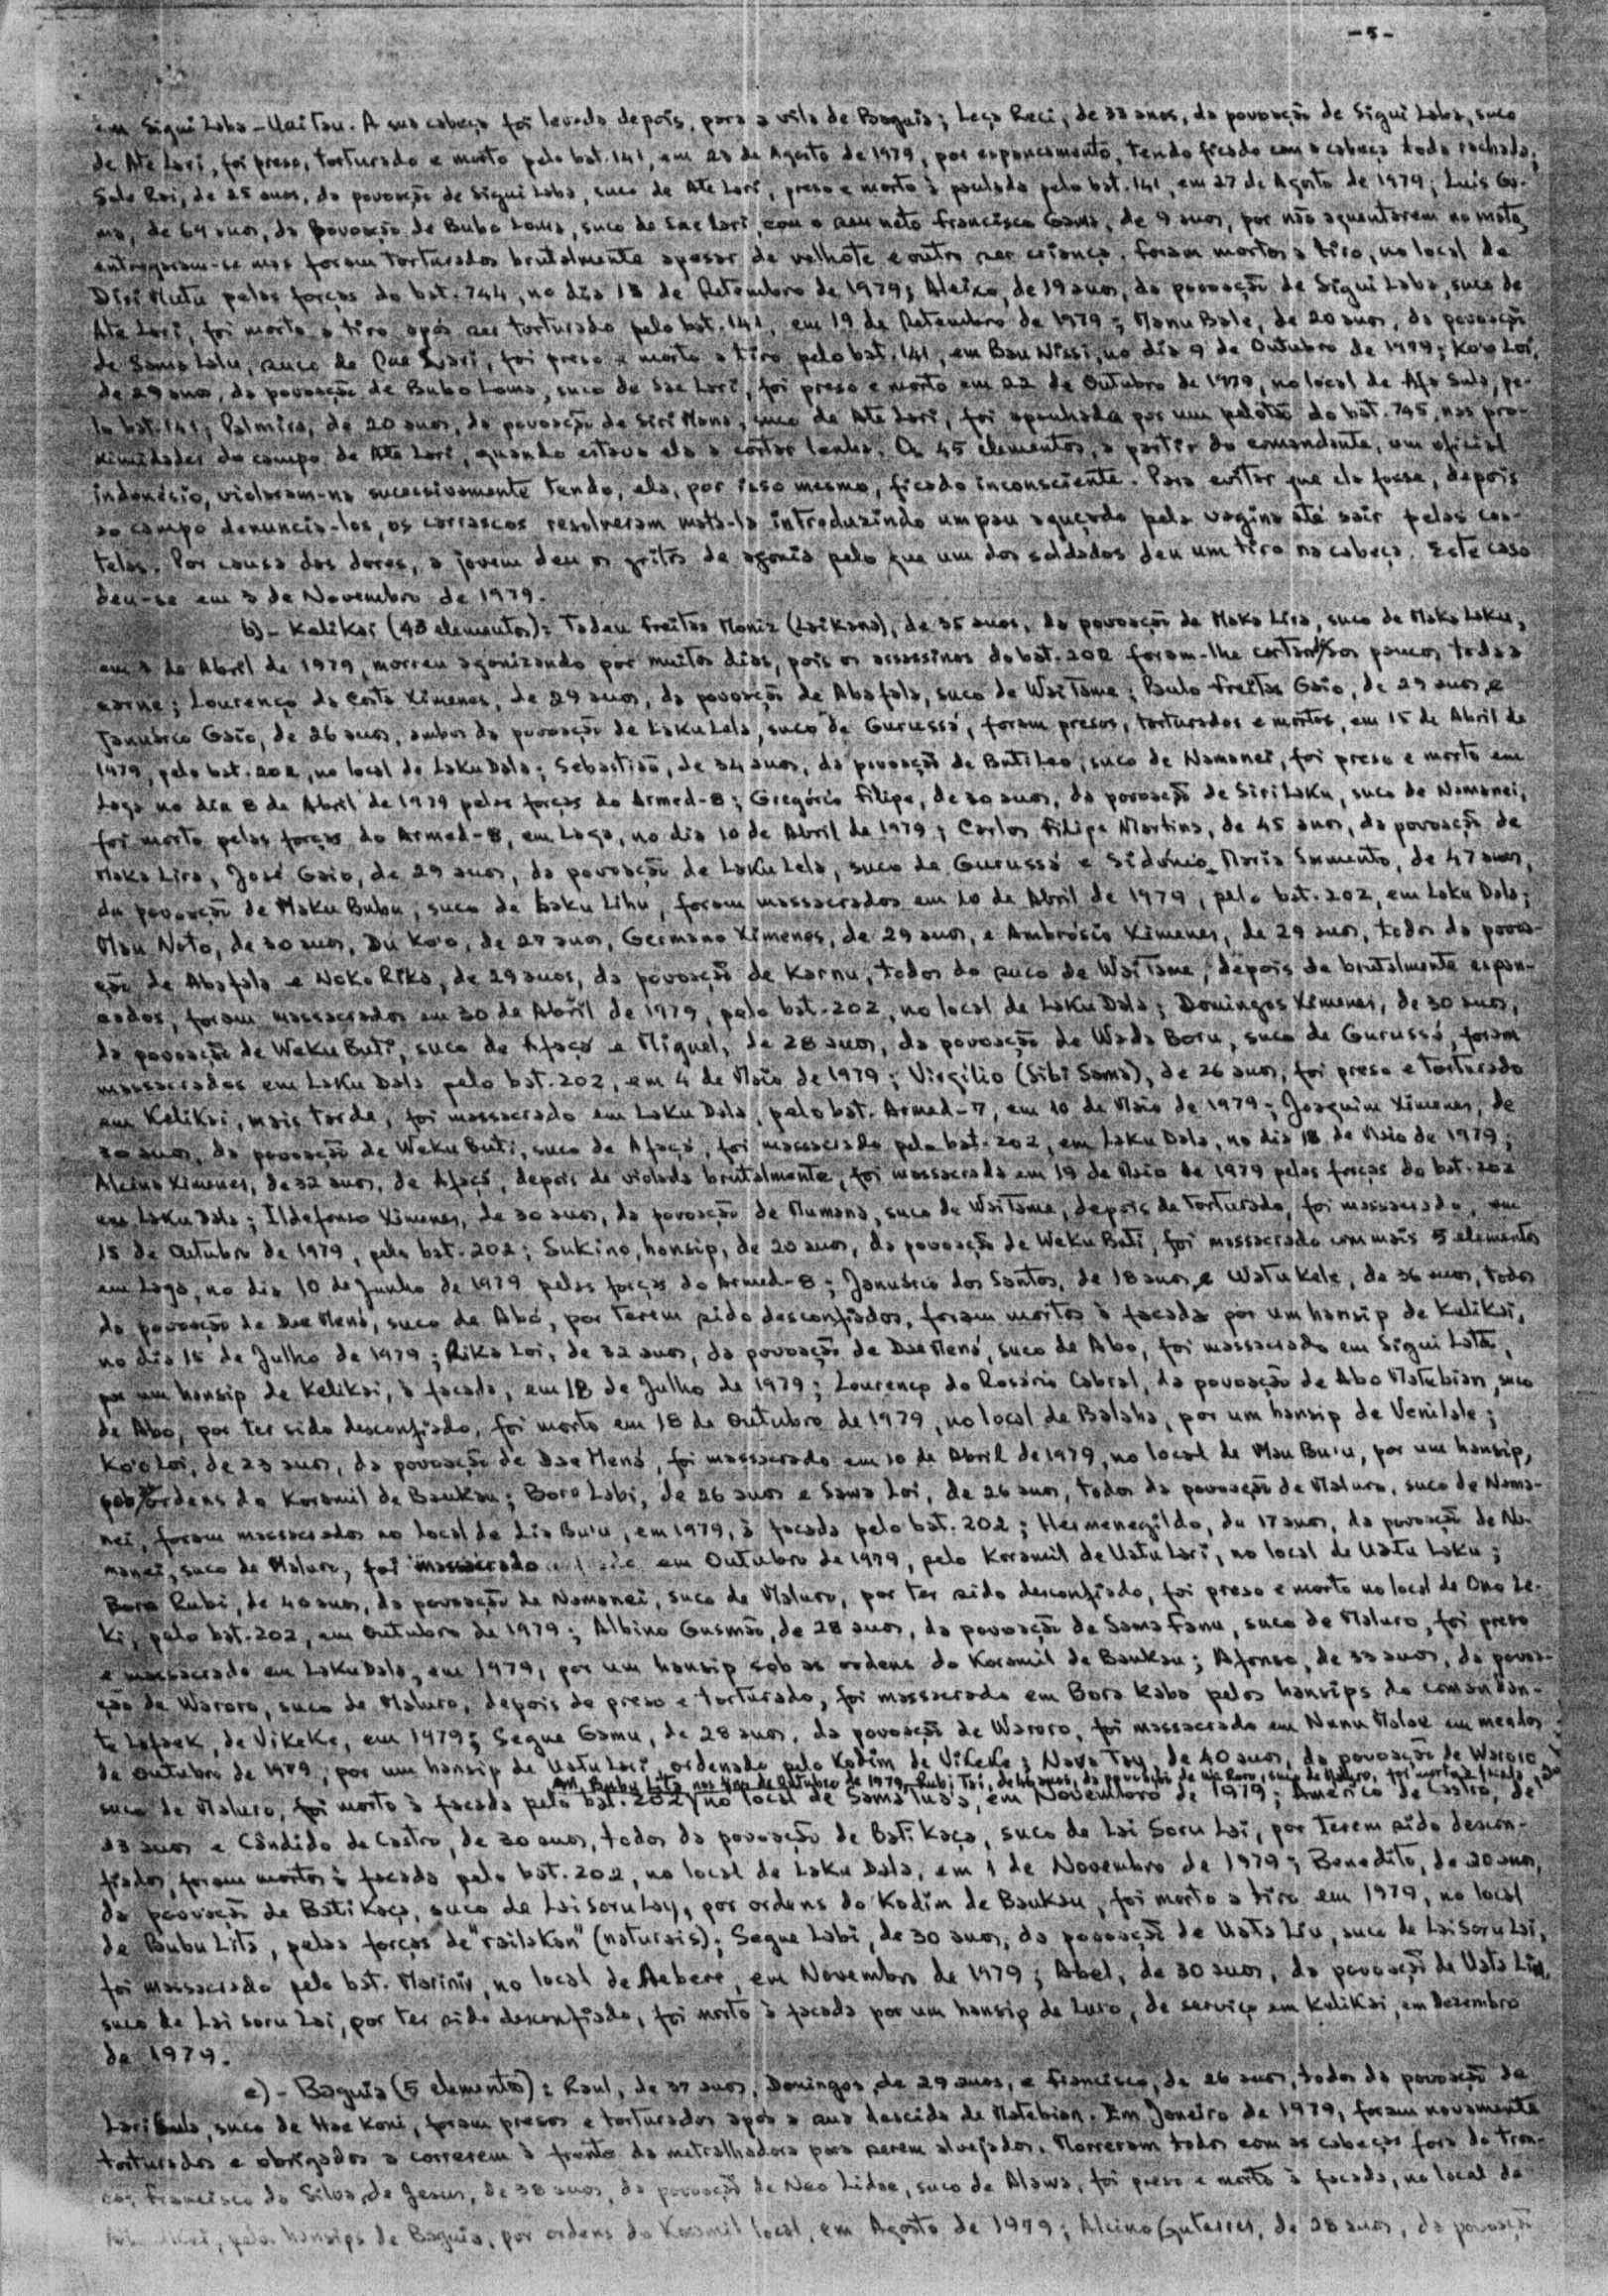 - 5 -
em Sigui Laba - Uai Tau. A sua cabeça foi levada depois, para a vila de Baguia; Leça Reci, de 33 anos, da povoação de Sigui Laba, suco
de Ate Lari, foi preso, torturado e morto pelo bat. 141, em 23 de Agosto de 1979, por espancamento, tendo ficado com a cabeça toda rachada;
Sala Roi, de 25 anos, da povoação de Sigui Laba, suco de Ate Lari, preso e morto à paulada pelo bat. 141, em 27 de Agosto de 1979; Luís Ga-
ma, de 64 anos, da povoação de Bubo Loma, suco de Sae Lari, com o seu neto Francisco Gama, de 9 anos, por não aguentarem no mato,
entregaram-se mas foram torturados brutalmente apesar de velhote e outro ser criança. Foram mortos a tiro, no local de
Disi Mutu pelas forças do bat. 744, no dia 13 de Setembro de 1979; Aleixo, de 19 anos, da povoação de Sigui Laba, suco de
Ate Lari, foi morto a tiro após ser torturado pelo bat. 141, em 19 de Setembro de 1979; Manu Bale, de 20 anos, da povoação
de Sama Lalu, suco de Sae Lari, foi preso e morto a tiro pelo bat. 141, em Bau Nissi, no dia 9 de Outubro de 1979; Ko'o Loi,
de 29 anos, da povoação de Bubo Loma, suco de Sae Lari, foi preso e morto em 22 de Outubro de 1979, no local de Afa Sula, pe-
lo bat. 141; Palmira, de 20 anos, da povoação de Siri Mana, suco de Ate Lari, foi apanhada por um pelotão do bat. 745, nas pro-
ximidades do campo de Ate Lari, quando estava ela a cortar lenha. Os 45 elementos, a partir do comandante, um oficial
indonésio, violaram-na sucessivamente tendo, ela, por isso mesmo, ficado inconsciente. Para evitar que ela fosse, depois
ao campo denunciá-los, os carrascos resolveram matá-la introduzindo um pau aguçado pela vagina até sair pelas cos-
telas. Por causa das dores, a jovem deu os gritos de agonia pelo que um dos soldados deu um tiro na cabeça. Este caso
deu-se em 3 de Novembro de 1979.
b) - Kelikai (43 elementos): Tadeu Freitas Moniz (Laikana), de 35 anos, da povoação de Maka Lira, suco de Maka Laku,
em de Abril de 1979, morreu agonizando por muitos dias, pois os assassinos do bat. 202 foram-lhe cortando aos poucos toda a
carne; Lourenço da Costa Ximenes, de 29 anos, da povoação de Abafala, suco de Waitame; Paulo Freitas Gaio, de 29 anos, e
Januário Gaio, de 26 anos, ambos da povoação de Laku Lela, suco de Gurussá, foram presos, torturados e mortos, em 15 de Abril de
1979, pelo bat. 202, no local de Laku Dala; Sebastião, de 34 anos, da povoação de Buti Leo, suco de Namanei, foi preso e morto em
Laga no dia 8 de Abril de 1979 pelas forças do Armed-8; Gregório Filipe, de 30 anos, da povoação de Siri Laku, suco de Namanei,
foi morto pelas forças do Armed-8, em Laga, no dia 10 de Abril de 1979; Carlos Filipe Martins, de 45 anos, da povoação de
Maka Lira, José Gaio, de 29 anos, da povoação de Laku Lela, suco de Gurussá e Sidónio Maria Sarmento, de 47 anos,
da povoação de Maku Bubu, suco de Laku Lihu, foram massacrados em 10 de Abril de 1979, pelo bat. 202, em Laku Dala;
Mau Noto, de 30 anos, Du Ko'o, de 27 anos, Germano Ximenes, de 29 anos, e Ambrósio Ximenes, de 29 anos, todos da povoa-
ção de Abafala e Noko Rika, de 29 anos, da povoação de Karnu, todos do suco de Waitame, depois de brutalmente espan-
cados, foram massacrados em 30 de Abril de 1979, pelo bat. 202, no local de Laku Dala; Domingos Ximenes, de 30 anos,
da povoação de Weku Buti, suco de Afaçá e Miguel, de 28 anos, da povoação de Wada Boru, suco de Gurussá, foram
massacrados em Laku Dala pelo bat. 202, em 4 de Maio de 1979; Virgílio (Sibi Sama), de 26 anos, foi preso e torturado
em Kelikai, mais tarde, foi massacrado em Laku Dala, pelo bat. Armed-7, em 10 de Maio de 1979; Joaquim Ximenes, de
30 anos, da povoação de Weku Buti, suco de Afaçá, foi massacrado pelo bat. 202, em Laku Dala, no dia 18 de Maio de 1979;
Alcina Ximenes, de 32 anos, de Afaçá, depois de violada brutalmente, foi massacrada em 19 de Maio de 1979 pelas forças do bat. 202
em Laku Dala; Ildefonso Ximenes, de 30 anos, da povoação de Mumana, suco de Waitame, depois de torturado, foi massacrado, em
15 de Outubro de 1979, pelo bat. 202; Sukino, hansip, de 20 anos, da povoação de Weku Buti, foi massacrado com mais 5 elementos
em Laga, no dia 10 de Junho de 1979 pelas forças do Armed-8; Januário dos Santos, de 18 anos, e Watu Kele, de 36 anos, todos
da povoação de Dae Mená, suco de Abó, por terem sido desconfiados, foram mortos à facada por um hansip de Kelikai,
no dia 15 de Julho de 1979; Rika Loi, de 32 anos, da povoação de Dae Mená, suco de Abo, foi massacrado em Sigui Lata,
por um hansip de Kelikai, à facada, em 18 de Julho de 1979; Lourenço do Rosário Cabral, da povoação de Abo Matebian, suco
de Abo, por ter sido desconfiado, foi morto em 18 de Outubro de 1979, no local de Balaha, por um hansip de Venilale;
Ko'o Loi, de 23 anos, da povoação de Dae Mená, foi massacrado em 10 de Abril de 1979, no local de Mau Bu'u, por um hansip,
sob ordens do Koramil de Baukau; Bora Labi, de 26 anos e Sawa Loi, de 26 anos, todos da povoação de Maluro, suco de Nama-
nei, foram massacrados no local de Lia Bu'u, em 1979, à facada pelo bat. 202; Hermenegildo, de 17 anos, da povoação de Na-
manei, suco de Maluro, foi massacrado em Outubro de 1979, pelo Koramil de Uatu Lari, no local de Uatu Laku;
Bora Rubi, de 40 anos, da povoação de Namanei, suco de Maluro, por ter sido desconfiado, foi preso e morto no local de Ono Le-
ki, pelo bat. 202, em Outubro de 1979; Albino Gusmão, de 28 anos, da povoação de Sama Fanu, suco de Maluro, foi preso
e massacrado em Laku Dala, em 1979, por um hansip sob as ordens do Koramil de Baukau; Afonso, de 33 anos, da povoa-
ção de Waroro, suco de Maluro, depois de preso e torturado, foi massacrado em Bora Kabo pelos hansips do comandan-
te Lafaek, de Vikeke, em 1979; Segue Gamu, de 28 anos, da povoação de Waroro, foi massacrado em Nanu Maloe em meados
de Outubro de 1979, por um hansip de Uatu Lari, ordenado pelo Kodim de Vikeke; Nava Tay, de 40 anos, da povoação de Waroro,
em Bubu Lita nos fins de Outubro de 1979, Rubi Tai, de 46 anos, da povoação de Wa Roro, suco de Maluro, foi morto à facada,
suco de Maluro, foi morto à facada pelo bat. 202, no local de Sama Lua'a, em Novembro de 1979; Américo de Castro, de
23 anos e Cândido de Castro, de 20 anos, todos da povoação de Bati Kaça, suco de Lai Soru Lai, por terem sido descon-
fiados, foram mortos à facada pelo bat. 202, no local de Laku Dala, em 1 de Novembro de 1979; Benedito, de 20 anos,
da povoação de Bati Kaça, suco de Lai Soru Lay, por ordens do Kodim de Baukau, foi morto a tiro em 1979, no local
de Bubu Lita, pelas forças de "railakan" (naturais); Segue Labi, de 30 anos, da povoação de Uata Liu, suco de Lai Soru Lai,
foi massacrado pelo bat. Marinir, no local de Aebere, em Novembro de 1979; Abel, de 30 anos, da povoação de Uata Liu,
suco de Lai Soru Lai, por ter sido desconfiado, foi morto à facada por um hansip de Luro, de serviço em Kelikai, em Dezembro
de 1979.
c) - Baguia (5 elementos): Raul, de 37 anos, Domingos, de 29 anos, e Francisco, de 26 anos, todos da povoação de
Lari Sula, suco de Hae Koni, foram presos e torturados após a sua descida de Matebian. Em Janeiro de 1979, foram novamente
torturados e obrigados a correrem à frente da metralhadora para serem alvejados. Morreram todos com as cabeças fora do tron-
co; Francisco da Silva de Jesus, de 38 anos, da povoação de Nae Lidae, suco de Alawa, foi preso e morto à facada, no local de
pelos hansips de Baguia, por ordens do Koramil local, em Agosto de 1979; Alcino Guterres, de 28 anos, da povoação